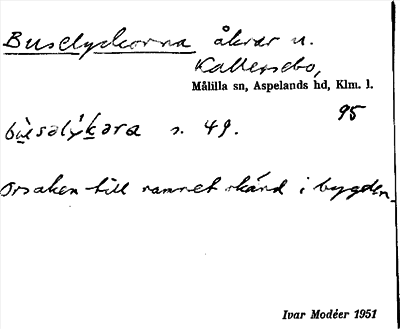 Buselyckorna åkrar u.
Kallersebo,
Målilla sn, Aspelands hd, Klm. l.
95
s. 49.
Orsaken till namnet okänd i bygden.
Ivar Modéer 1951